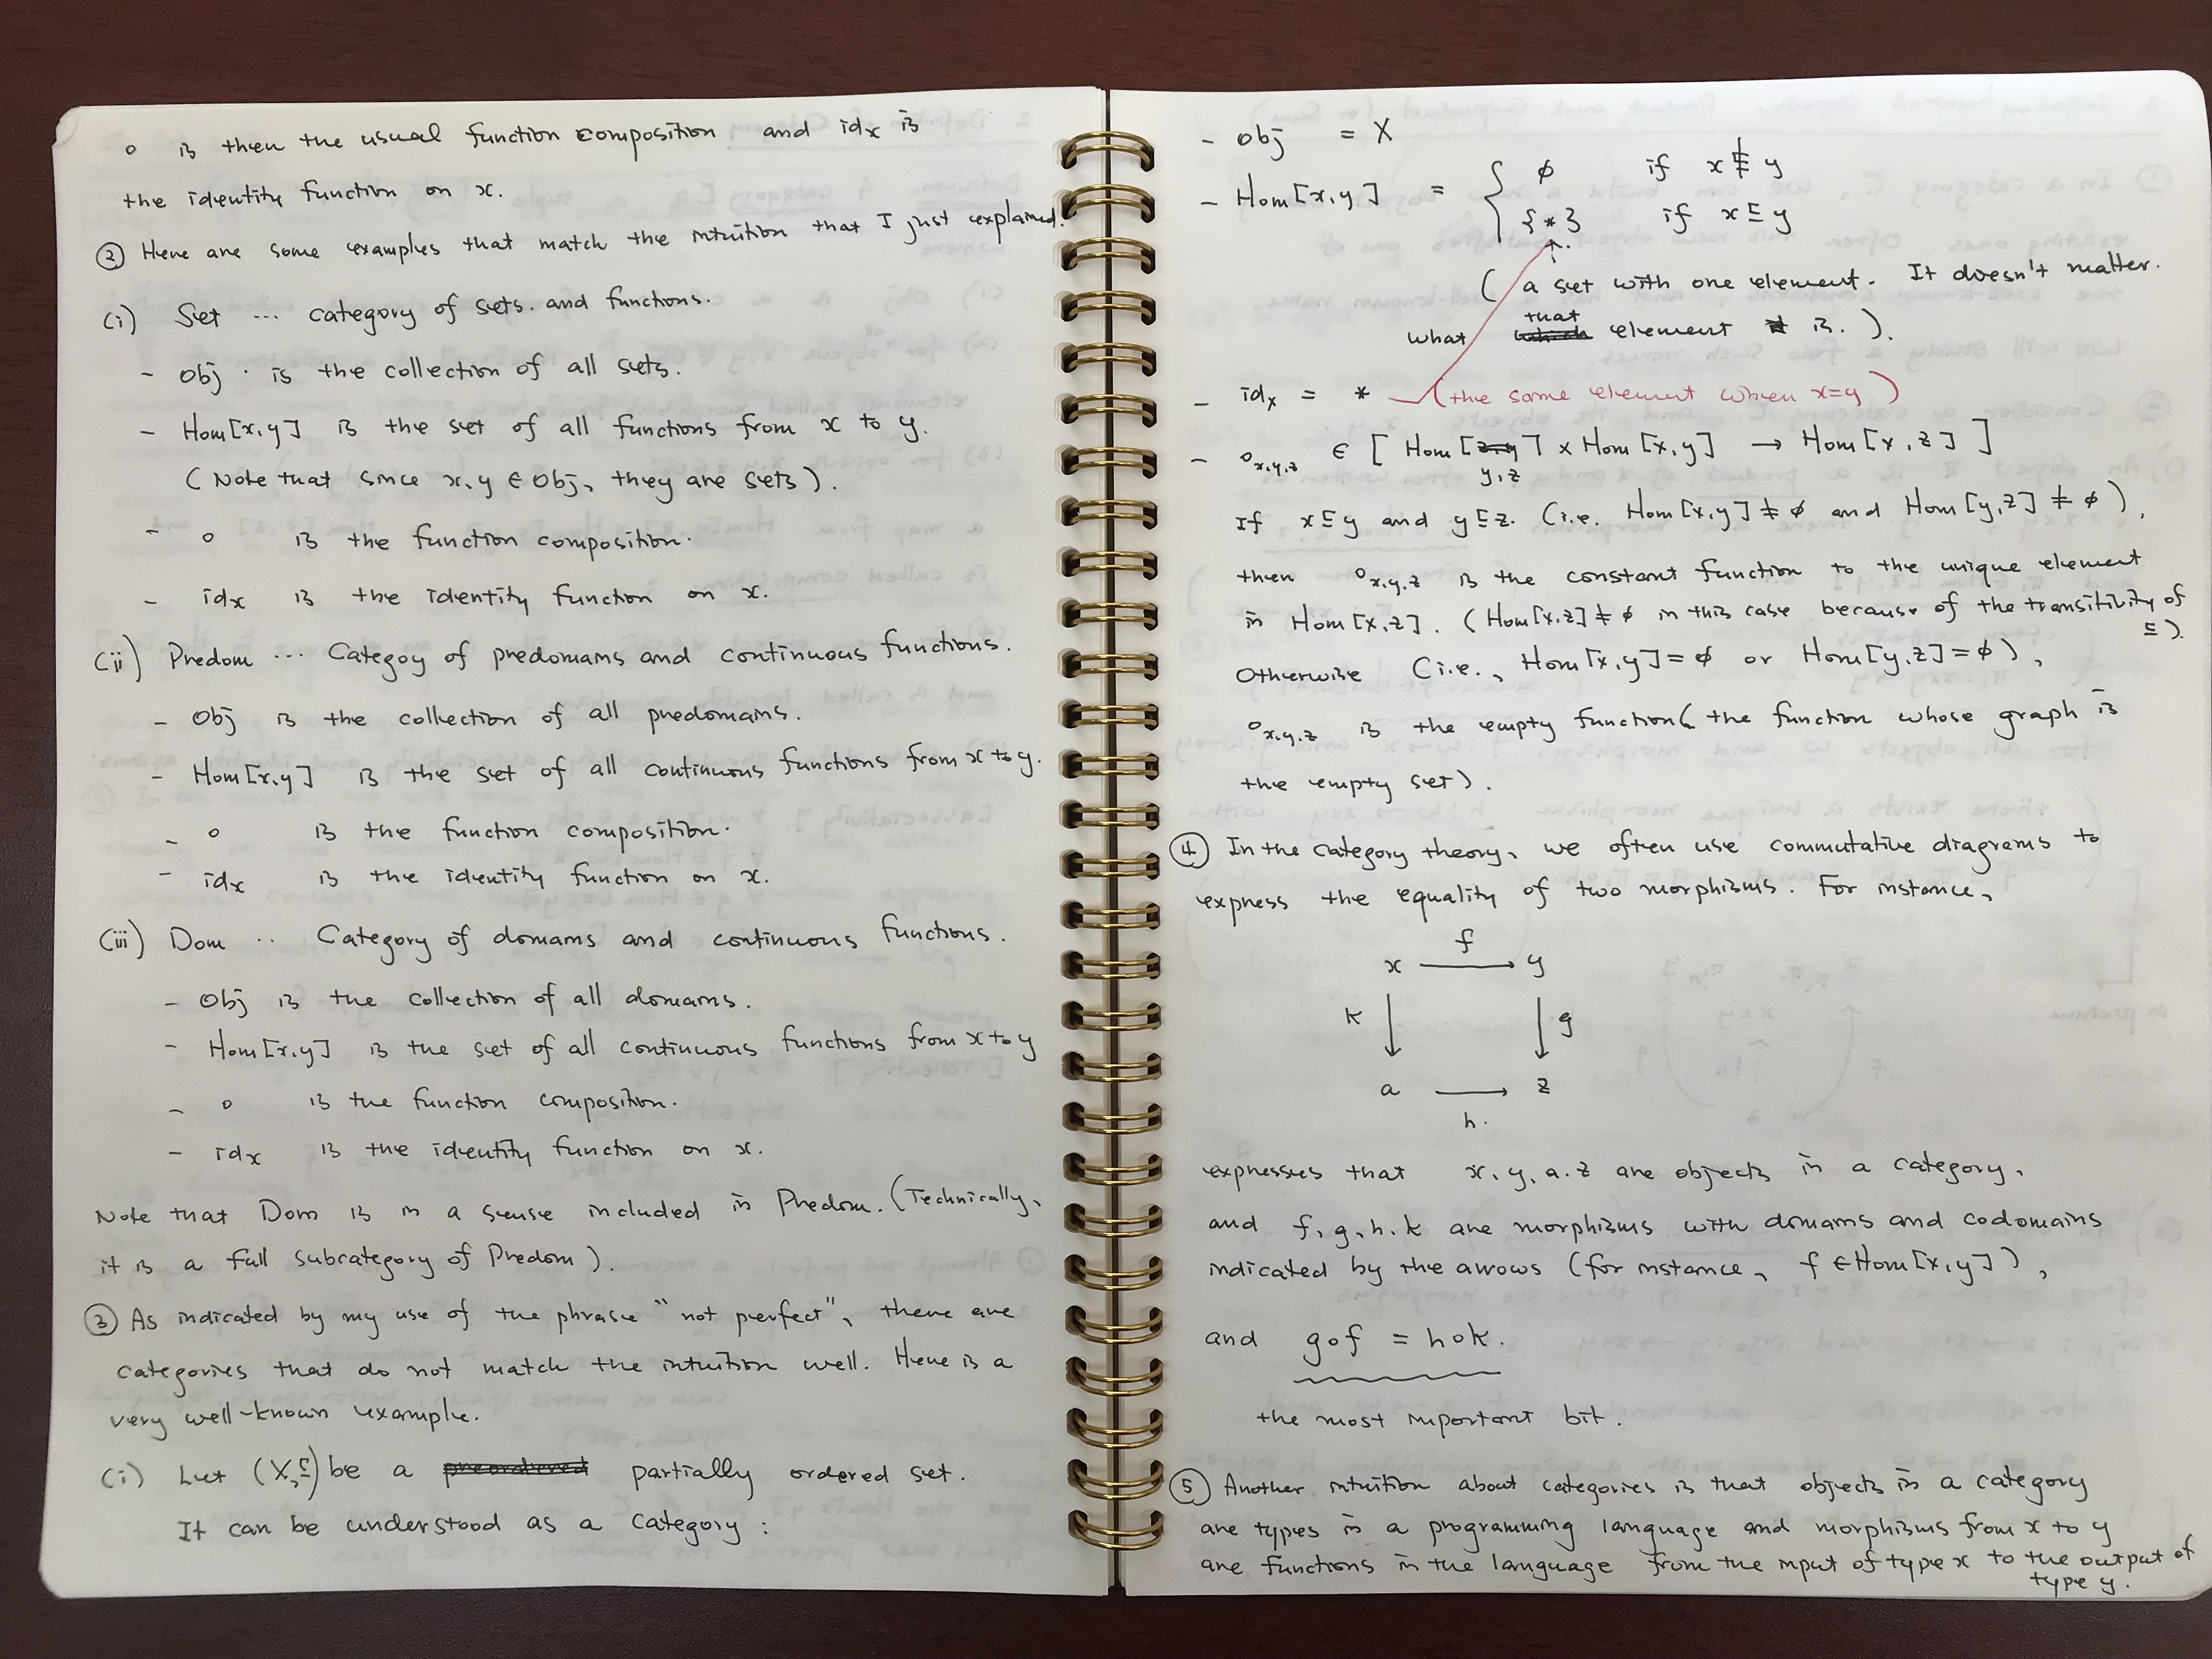 ∘ is then the usual function composition and idx is
the identity function on x.
② Here are some examples that match the intuition that I just explained.
(i) Set ... category of sets. and functions.
- Obj is the collection of all sets.
- Hom[x,y] is the set of all functions from x to y.
(Note that since x,y ∈ Obj, they are sets).
- ∘ is the function composition.
- idx is the identity function on x.
(ii) Predom ... Categoy of predomains and continuous functions.
- Obj is the collection of all predomains.
- Hom[x,y] is the set of all continuous functions from x to y.
- ∘ is the function composition.
- idx is the identity function on x.
(iii) Dom .. Category of domains and continuous functions.
- Obj is the collection of all domains.
- Hom[x,y] is the set of all continuous functions from x to y
- ∘ is the function composition.
- idx is the identity function on x.
Note that Dom is in a sense included in Predom. (Technically,
it is a full subcategory of Predom).
③ As indicated by my use of the phrase "not perfect", there are
categories that do not match the intuition well. Here is a
very well-known example.
(i) Let (X,⊑) be a preordered partially ordered set.
It can be understood as a category :
- Obj = X
- Hom[x,y] = { ∅ if x ⋢ y
{*} if x ⊑ y
↑
( a set with one element. It doesn't matter.
what which that element is. ).
- idx = * (the same element when x=y)
- ∘x,y,z ∈ [ Hom[y,z] × Hom[x,y] → Hom[x,z] ]
If x⊑y and y⊑z. (i.e. Hom[x,y] ≠ ∅ and Hom[y,z] ≠ ∅),
then ∘x,y,z is the constant function to the unique element
in Hom[x,z]. (Hom[x,z] ≠ ∅ in this case because of the transitivity of
⊑).
Otherwise (i.e., Hom[x,y] = ∅ or Hom[y,z] = ∅),
∘x,y,z is the empty function (the function whose graph is
the empty set).
④ In the category theory, we often use commutative diagrams to
express the equality of two morphisms. For instance,
f
x → y
k ↓ ↓ g
a → z
h.
expresses that x, y, a. z are objects in a category,
and f, g, h, k are morphisms with domains and codomains
indicated by the arrows (for instance, f ∈ Hom[x,y]),
and g∘f = h∘k.
the most important bit.
⑤ Another intuition about categories is that objects in a category
are types in a programming language and morphisms from x to y
are functions in the language from the input of type x to the output of
type y.